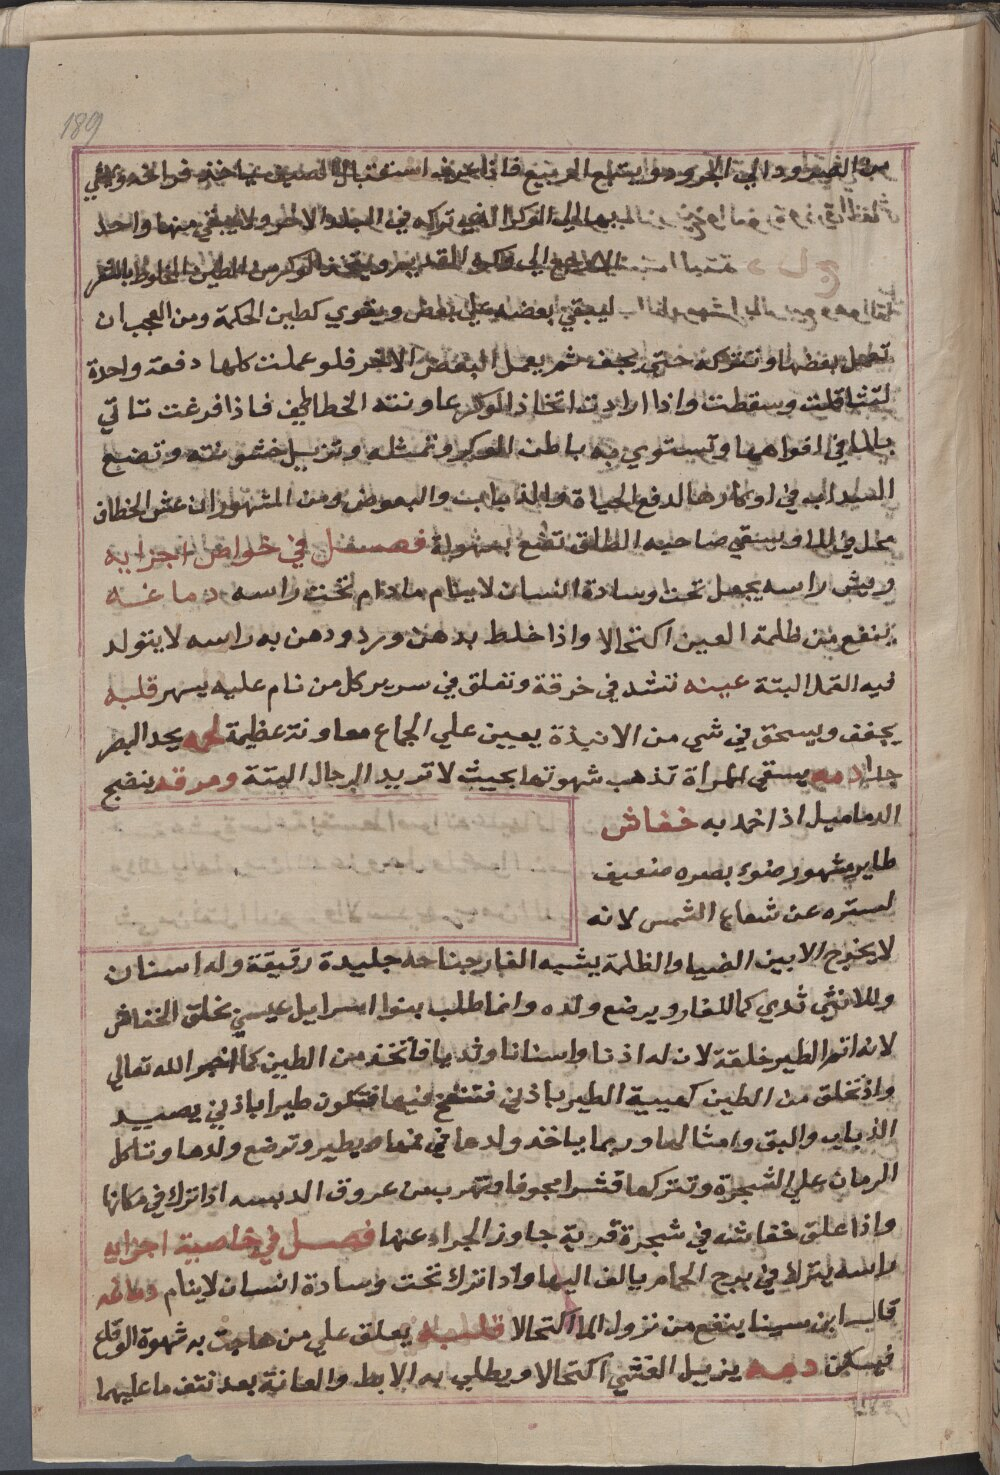 189
من الصرود الي الجروم ويتبع الربيع فاذا عرف استقبال الصيف ياخذ فراخه وياتي
بها الي الوكر الذي تركه في البلد الاخر ولا يبقي منها واحد
الا رجع الي وكره القديم ويتخذ الوكر من الطين المخلوط بالشعر
ليبقي بعضه علي بعض ويقوي كطين الحكمة ومن العجب ان
تعمل بعضها وتتركه حتي يجف ثم يعمل البعض الاخر فلو عملت كلها دفعة واحدة
لتثاقلت وسقطت واذا ارادت اتخاذ الوكر عاونته الخطاطيف فاذا فرغت تاتي
بالما في افواهها وتستوي به باطن الوكر وتمثله وتزيل خشونته وتضع
السداب في اوكارها لدفع الحياة والذباب والبعوض ومن المشهور ان عش الخطاف
يحل في الما ويسقي صاحبه الطلق تضع بسهولة فصل في خواص اجزايه
وريش راسه يجعل تحت وسادة انسان لا ينام مادام تحت راسه دماغه
ينفع من ظلمة العين اكتحالا واذا خلط بدهن ورد ودهن به راسه لا يتولد
فيه القمل البتة عينه تشد في خرقة وتعلق في سرير كل من نام عليه يسهر قلبه
يجفف ويسحق في شي من الانبذة يعين علي الجماع معاونة عظيمة لحمه يحد البصر
جدا دمه يسقي المراة تذهب شهوتها بحيث لا تريد الرجال البتة ومرقه ينضج
الدماميل اذا ضمد به خفاش
طاير مشهور ضوء بصره ضعيف
لستره عن شعاع الشمس لانه
لا يخرج الا بين الضيا والظلمة يشبه الفار جناحه جليدة رقيقة وله اسنان
وللانثي ثدي كما للفار ويرضع ولده وانما طلب بنوا اسرايل عيسي بخلق الخفاش
لانه اتم الطير خلقة لان له اذنا واسنانا وثديا فاتخذ من الطين كما اخبر الله تعالي
واذ تخلق من الطين كهيية الطير باذني فتنفخ فيها فتكون طيرا باذني يصيد
الذباب والبق وامثالها وربما ياخذ ولدها في فمها ويطير وترضع ولدها وتاكل
الرمان علي الشجرة وتتركها قشرا مجوفا وتهرب من عروق الدبسه اذا ترك في مكانها
واذا علق خفاشه في شجرة قرية جاوز الجراد عنها فصل في خاصية اجزايه
راسه يترك في برج الحمام يالف اليها واذا ترك تحت وسادة انسان لا ينام دماغه
قال ابن سينا ينفع من نزول الما اكتحالا قلبه يعلق علي من هاجت به شهوة الوقاع
فيسكن دمه يزيل الغشي اكتحالا ويطلي به الابط والعانة بعد نتف ما عليهما